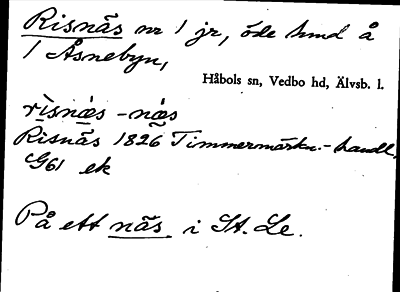 Risnäs nr 1 jr, öde hmd å
1 Åsnebyn,
Håbols sn, Vedbo hd, Älvsb. l.
rìsnæ̀s -næ̀s
Risnäs 1826 Timmermärkn.-handl.
G61 ek
På ett näs i St. Le.